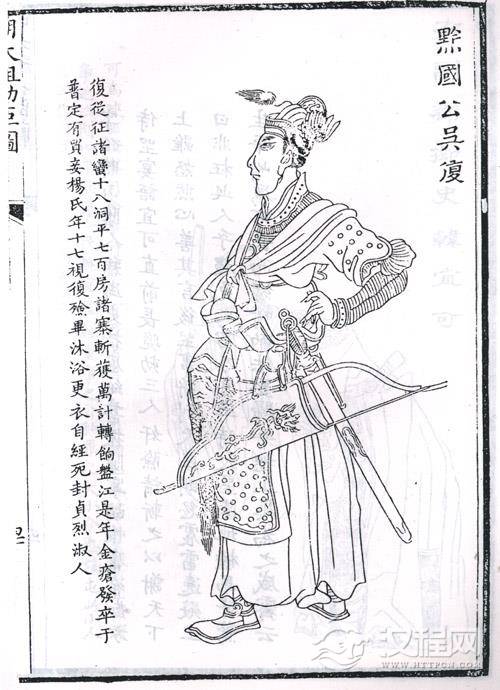 黔國公吳復
復從征諸蠻十八洞平七百房諸寨斬獲萬計轉餉盤江是年金瘡發卒于
普定有買妾楊氏年十七視復殮畢沐浴更衣自經死封貞烈淑人
明太祖功臣圖
汉程网
WWW.HTTPCN.COM